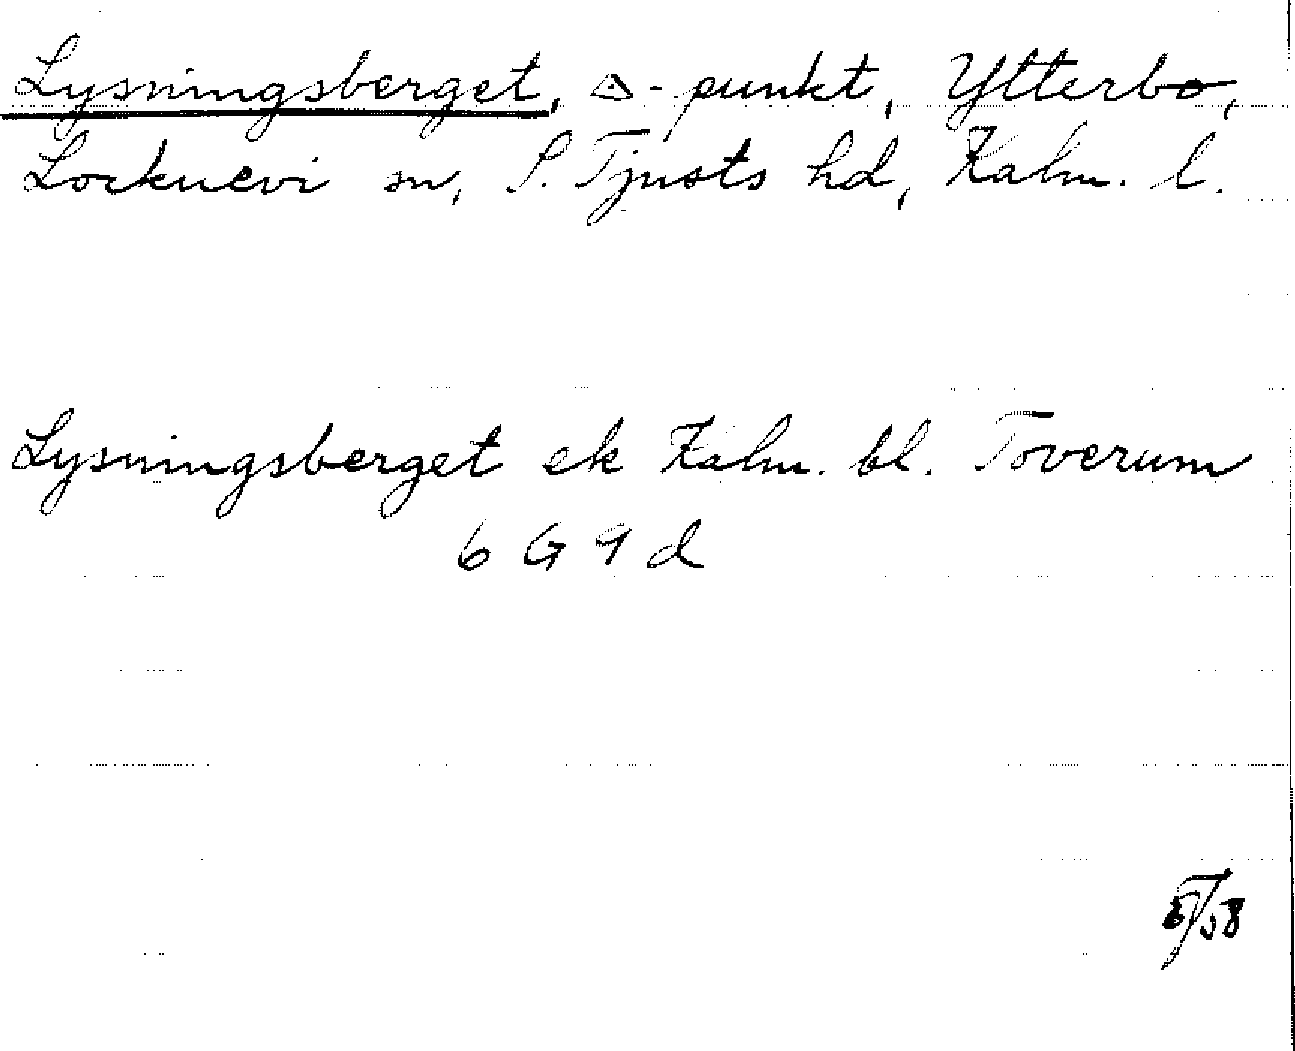 Lysningsberget, △-punkt, Ytterbo,
Locknevi sn, S. Tjusts hd, Kalm. l.
Lysningsberget ek Kalm. bl. Toverum
6 G 9 d